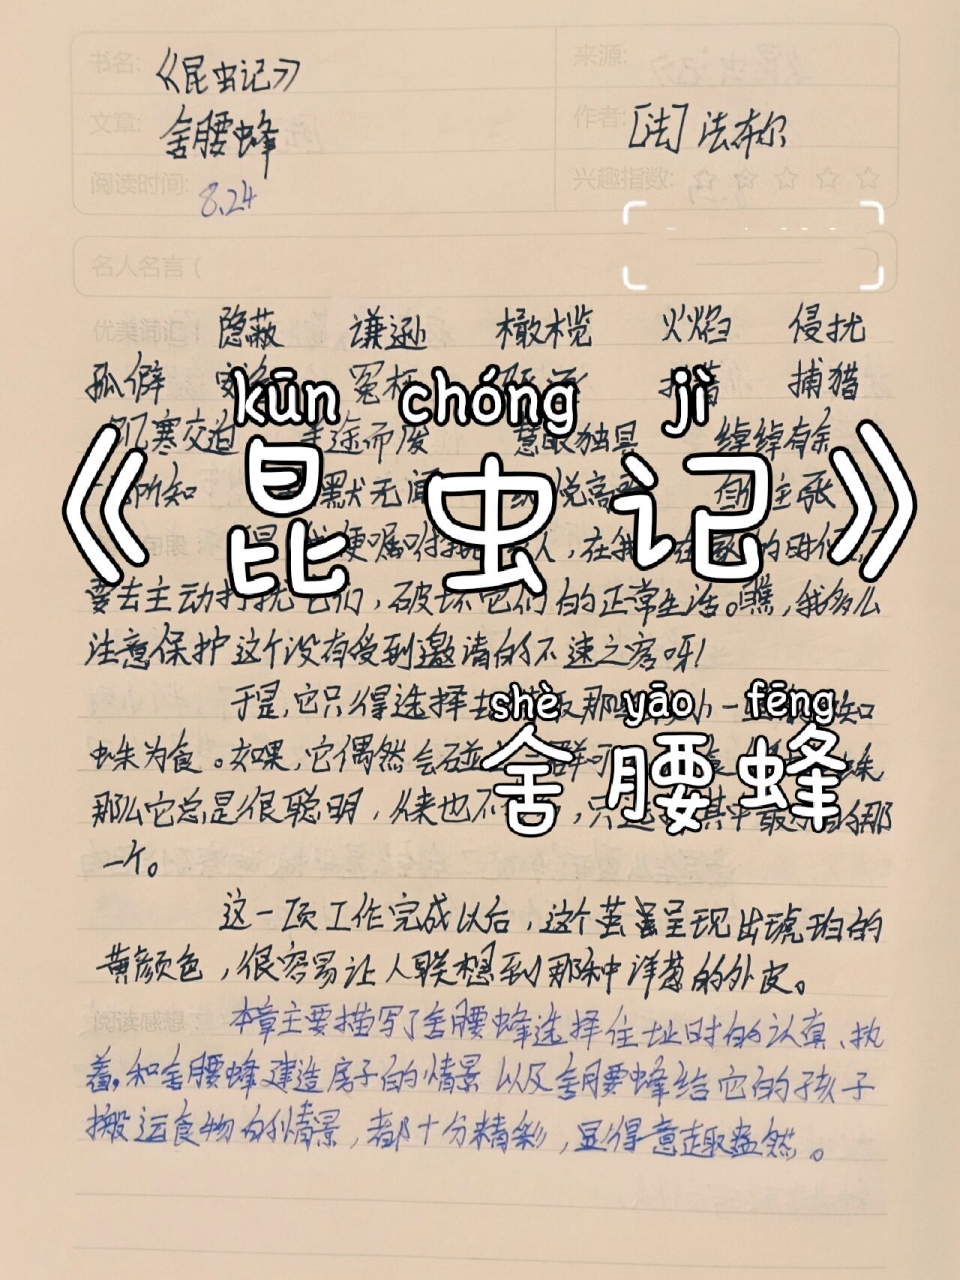 书名: 《昆虫记》 来源:
文章: 舍腰蜂 作者: [法] 法布尔
阅读时间: 8.24 兴趣指数: ☆ ☆ ☆ ☆ ☆
名人名言(
优美词汇 隐蔽 谦逊 橄榄 火焰 侵扰
孤僻 冤 捕猎
饥寒交迫 半途而废 慧眼独具 绰绰有余
所知 默无闻 悦 自 主张
kūn chóng jì
《昆虫记》
便嘱咐 人,在我 的时候,
要去主动打扰它们,破坏它们的正常生活。瞧,我多么
注意保护这个没有受到邀请的不速之客呀!
于是,它只得选择 那 小一 知
蛛为食。如果,它偶然会碰 群 食 蛛
那么它总是很聪明,从来也不 ,只选 其中最 的那
一个。
shè yāo fēng
舍腰蜂
这一项工作完成以后,这个茧呈现出琥珀的
黄颜色,很容易让人联想到那种洋葱的外皮。
阅读感想 本章主要描写了舍腰蜂选择住址时的认真、执
着,和舍腰蜂建造房子的情景以及舍腰蜂给它的孩子
搬运食物的情景,都十分精彩,显得意趣盎然。